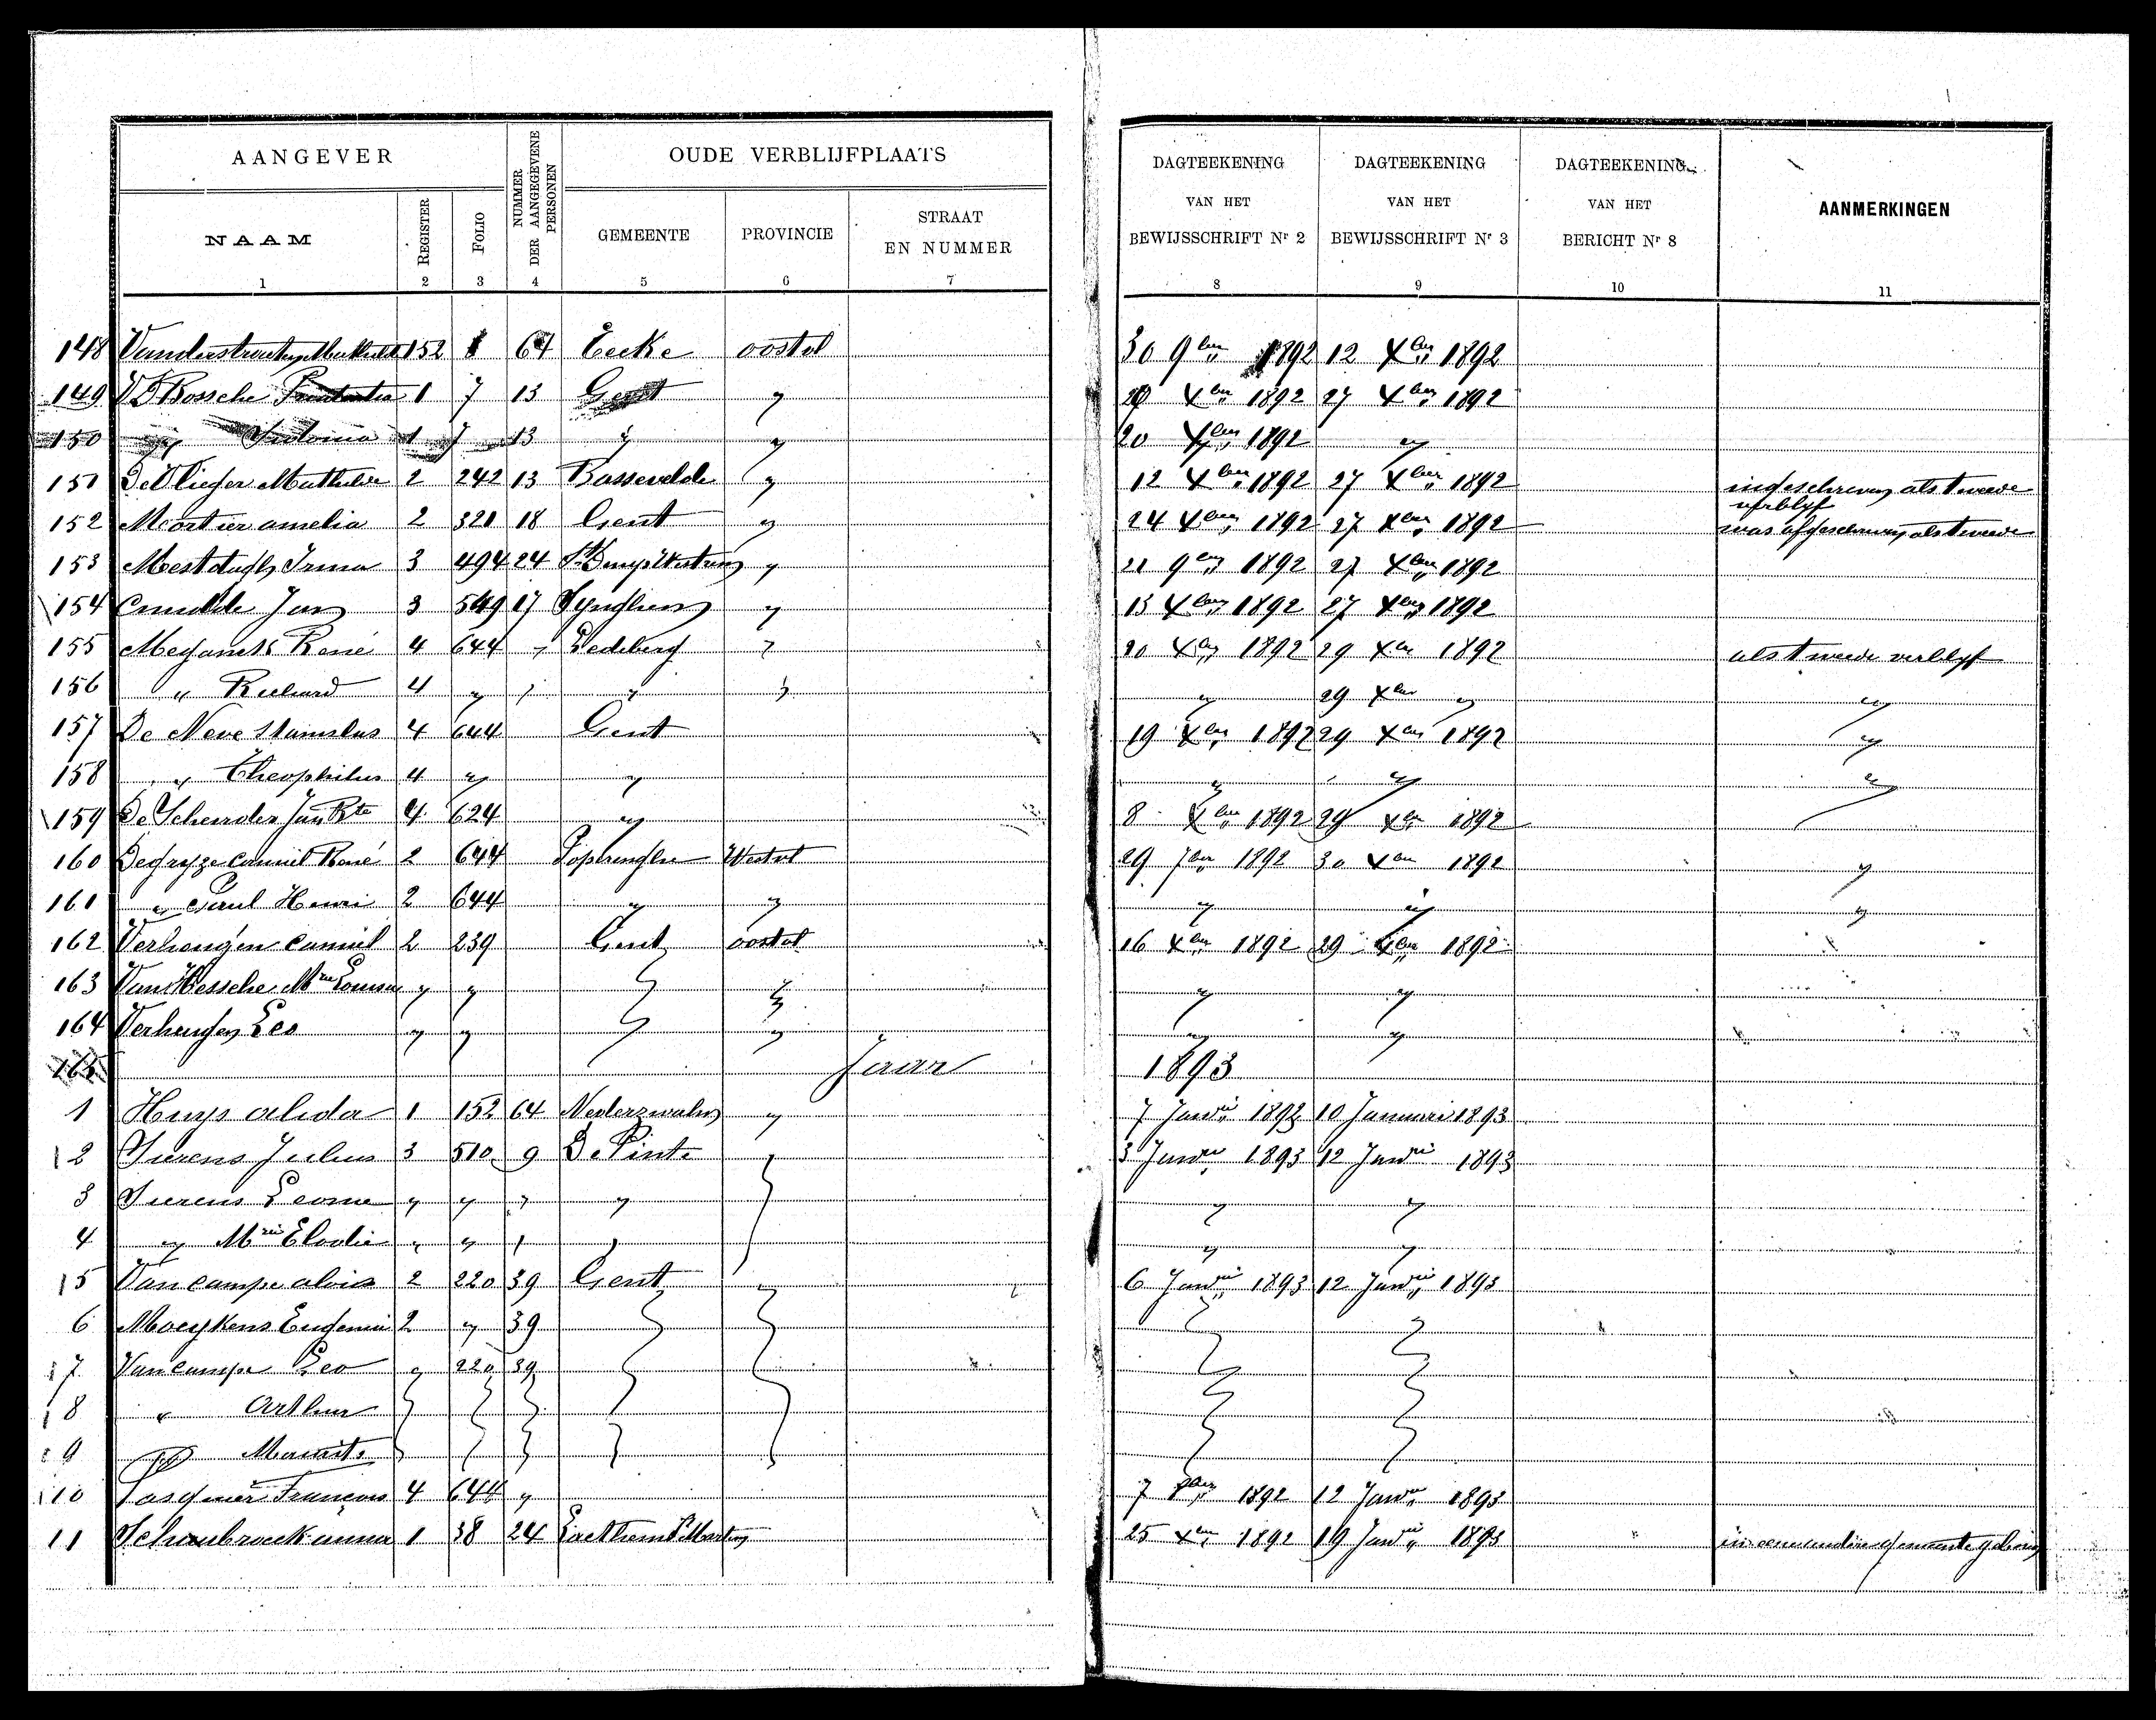 AANGEVER
NUMMER DER AANGEGEVENE PERSONEN
OUDE VERBLIJFPLAATS
DAGTEEKENING VAN HET BEWIJSSCHRIFT Nr 2
DAGTEEKENING VAN HET BEWIJSSCHRIFT Nr 3
DAGTEEKENING VAN HET BERICHT Nr 8
AANMERKINGEN
NAAM REGISTER FOLIO GEMEENTE PROVINCIE STRAAT EN NUMMER
1 2 3 4 5 6 7 8 9 10 11
148 152 64 Eecke oostvl 30 9ber 1892 12 Xber 1892
149 VD Bossche 1 7 13 Gent " 20 Xber 1892 27 Xber 1892
150 " 1 7 13 " " 20 Xber 1892 "
151 De Vlieger Mathilde 2 242 13 Bassevelde " 12 Xber 1892 27 Xber 1892 ingeschreven als tweede verblyf
152 Mortier amelia 2 321 18 Gent " 24 Xber 1892 27 Xber 1892 was afgeschreven als tweede
153 Mestdagh Irma 3 494 24 " 21 9ber 1892 27 Xber 1892
154 Jan 3 549 17 Synghem " 13 Xber 1892 27 Xber 1892
155 Meganck René 4 644 " Ledeberg " 20 Xber 1892 29 Xber 1892 als tweede verblyf
156 " Richard 4 " " " " " 29 Xber " "
157 De Neve Stanislas 4 644 Gent 19 Xber 1892 29 Xber 1892 "
158 " Theophilus 4 " " " " "
159 De Scheirder Jan Bte 4 624 " 8 Xber 1892 29 Xber 1892
160 Degryze Camiel René 2 644 Poperinghe Westvl 29 7ber 1892 30 Xber 1892 "
161 " Paul Henri 2 644 " " " " "
162 Verheugen Camiel 2 239 Gent oostvl 16 Xber 1892 29 Xber 1892
163 Van Hessche Mrie Louisa " " " " " "
164 Verheugen Leo " " " " " "
165 Jaar 1893
1 Huys alida 1 152 64 Nederzwalm " 7 Januarii 1892 10 Januari 1893
2 Surens Julius 3 510 9 De Pinte " 3 Januarii 1893 12 Januarii 1893
3 Surens Leonie " " " " " "
4 " Mrie Elodie " " " " " "
5 Van Campe alois 2 220 39 Gent " 6 Januarii 1893 12 Januarii 1893
6 Moeykens Eugenia 2 " 39
7 Van Campe Leo " 220 39
8 " Arthur
9 " Maurits
10 François 4 644 " 7 Xber 1892 12 Januarii 1893
11 Schoubroeck anna 1 38 24 25 Xber 1892 19 Januarii 1893 in eene andere gemeente